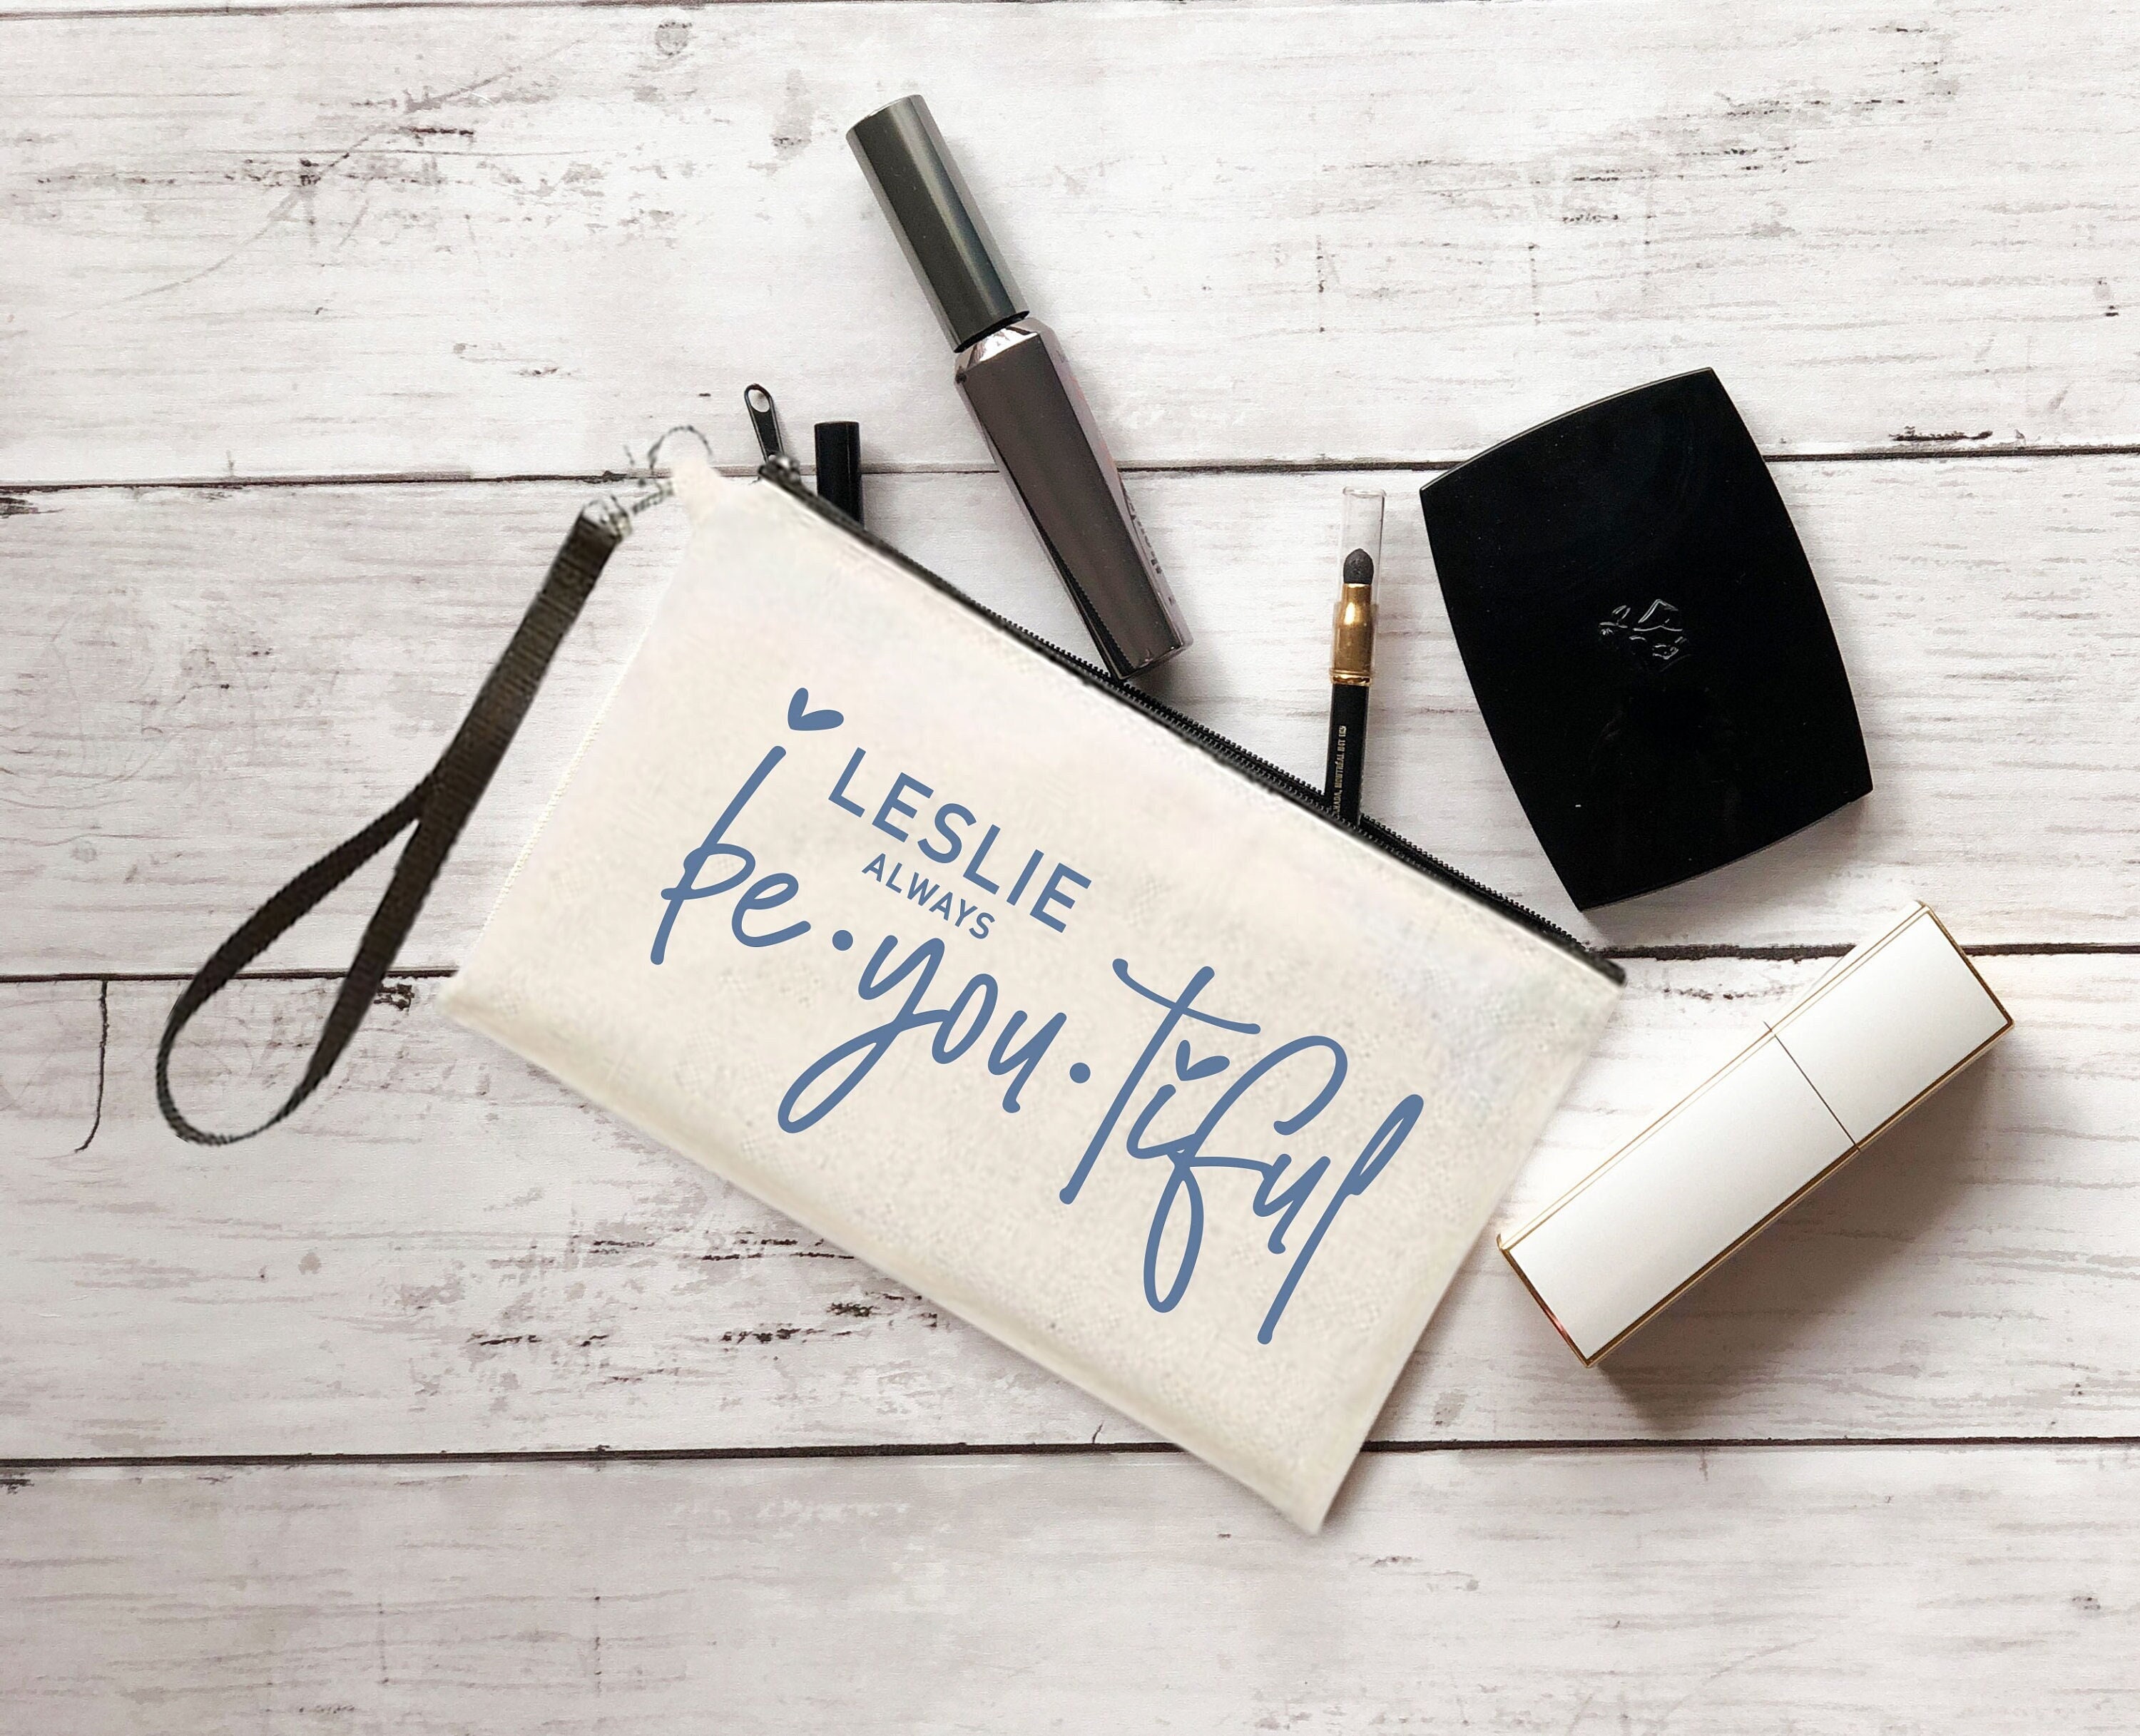 LESLIE
ALWAYS
be·you·tiful